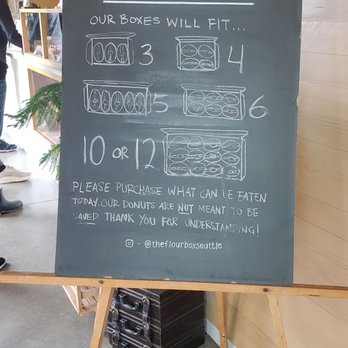 OUR BOXES WILL FIT...
3 4
5 6
10 OR 12
PLEASE PURCHASE WHAT CAN BE EATEN
TODAY. OUR DONUTS ARE NOT MEANT TO BE
SAVED. THANK YOU FOR UNDERSTANDING!
- @theflourboxseattle